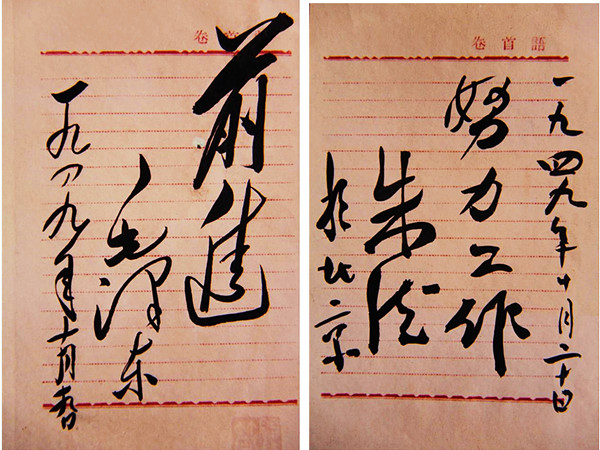 卷首
前進
毛澤东
一九四九年十月廿日
卷首語
一九四九年十月二十日
努力工作
朱德
於北京